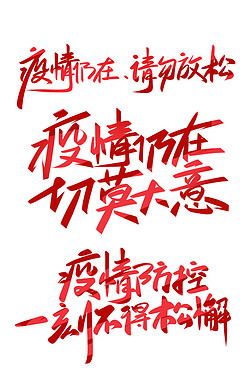 疫情仍在、请勿放松
疫情仍在
切莫大意
疫情防控
一刻不得松懈